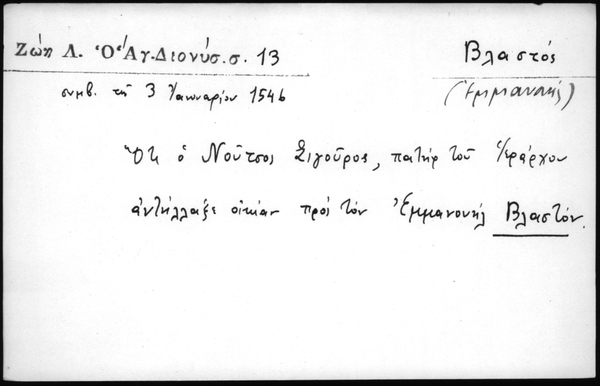 Ζώη Λ. Ὁ Ἅγ. Διονύσ. σ. 13
Βλαστός
συμβ. τῆς 3 Ἰαννουαρίου 1546
(Ἐμμανουήλ)
Ὅτι ὁ Νοῦτσος Σιγοῦρος, πατήρ τοῦ Ἱεράρχου
ἀντήλλαξε οἰκίαν πρός τόν Ἐμμανουήλ Βλαστόν.